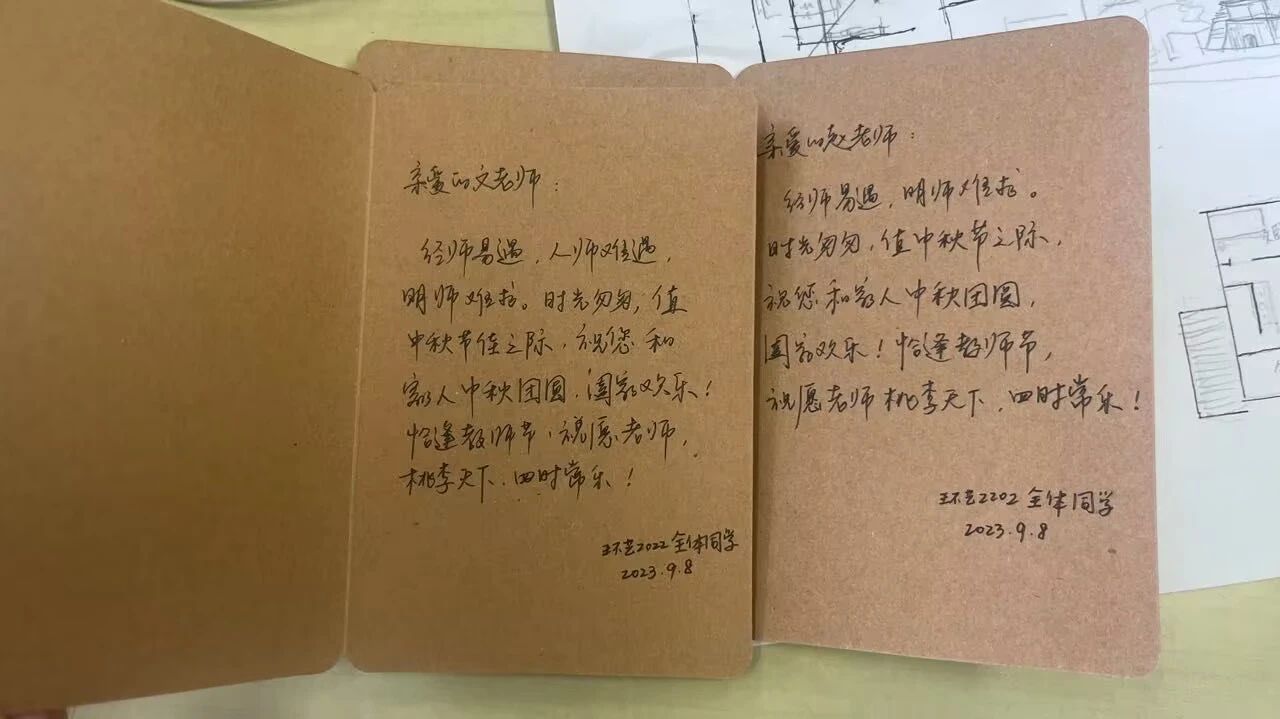 亲爱的文老师：
经师易遇，人师难遇，
明师难找。时光匆匆，值
中秋节佳之际，祝您和
家人中秋团圆，阖家欢乐！
恰逢教师节，祝愿老师，
桃李天下，四时常乐！
环艺2022全体同学
2023.9.8
亲爱的赵老师：
经师易遇，明师难找。
时光匆匆，值中秋节之际，
祝您和家人中秋团圆，
阖家欢乐！恰逢教师节，
祝愿老师桃李天下，四时常乐！
环艺2202全体同学
2023.9.8